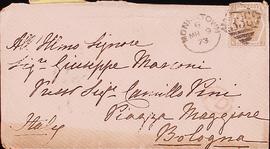 MONKSTOWN
MR 9
73
All' Illmo Signore
Sigr. Giuseppe Marconi
Presso Sigr. Camillo Pini
Piazza Maggiore
Italy
Bologna